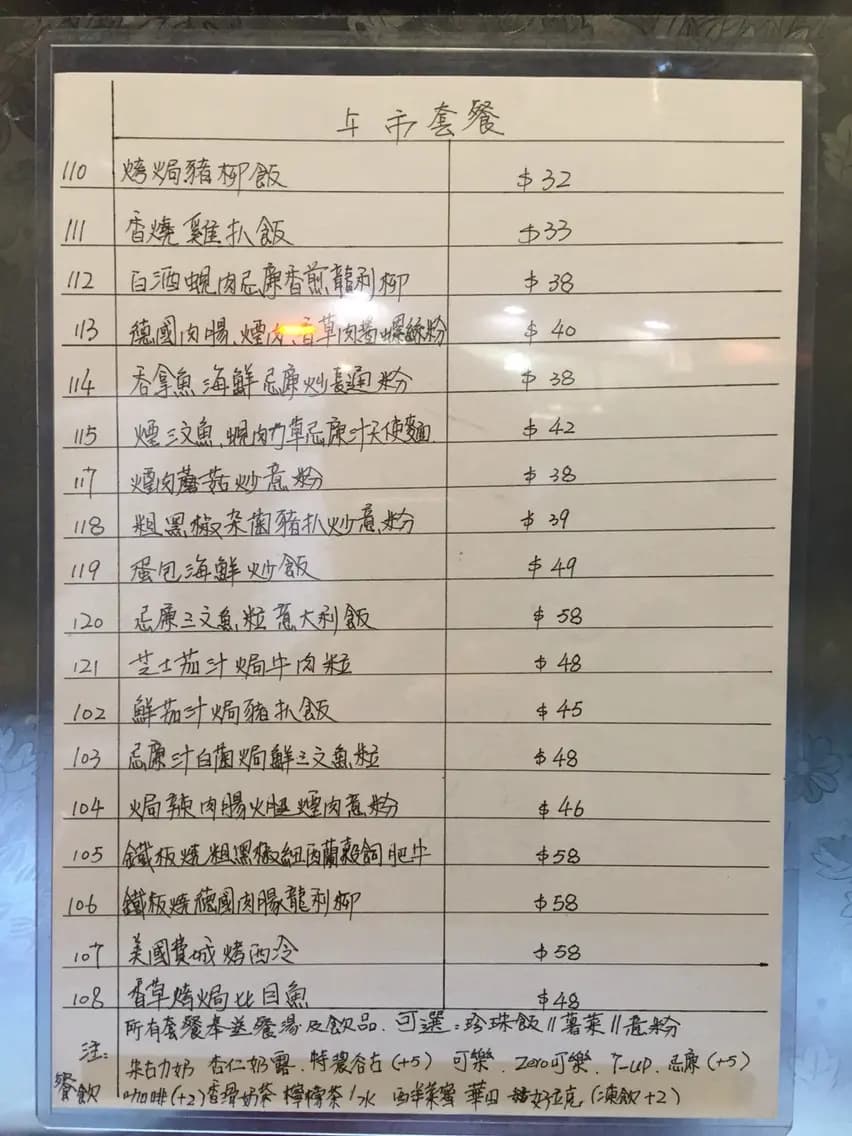 午市套餐
110 烤焗豬柳飯 $32
111 香燒雞扒飯 $33
112 白酒蜆肉忌廉香煎龍利柳 $38
113 德國肉腸、煙肉、香草肉醬螺絲粉 $40
114 吞拿魚海鮮忌廉炒長通粉 $38
115 煙三文魚、蜆肉草忌廉汁天使麵 $42
117 煙肉蘑菇炒意粉 $38
118 粗黑椒杂菌豬扒炒意粉 $39
119 蛋包海鮮炒飯 $49
120 忌廉三文魚粒意大利飯 $58
121 芝士茄汁焗牛肉粒 $48
102 鮮茄汁焗豬扒飯 $45
103 忌廉汁白菌焗鮮三文魚粒 $48
104 焗辣肉腸火腿煙肉意粉 $46
105 鐵板燒粗黑椒紐西蘭穀飼肥牛 $58
106 鐵板燒德國肉腸龍利柳 $58
107 美國費城烤西冷 $58
108 香草烤焗比目魚 $48
所有套餐奉送餐湯及飲品. 可選:珍珠飯//薯菜//意粉
注: 朱古力奶 杏仁奶露. 特濃谷古(+5) 可樂. Zero可樂. 7-UP. 忌廉(+5)
餐飲 咖啡(+2)香滑奶茶 檸檬茶/水 西洋菜蜜 華田 好立克(凍飲+2)